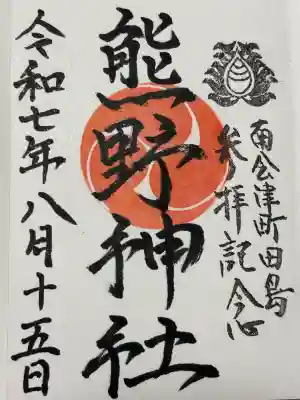 南会津町田島
参拝記念
熊野神社
令和七年八月十五日